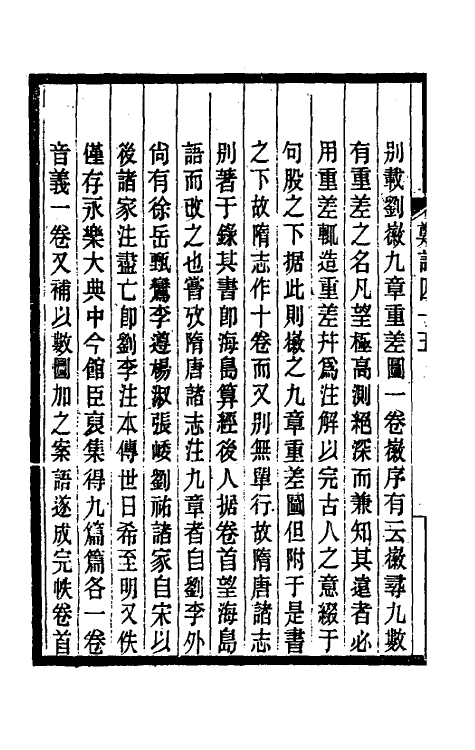 別載劉徽九章重差圖一卷徽序有云徽尋九數
有重差之名凡望極高測絕深而兼知其遠者必
用重差輒造重差幷爲注解以完古人之意綴于
句股之下据此則徽之九章重差圖但附于是書
之下故隋志作十卷而又別無單行故隋唐諸志
別著于錄其書卽海島算經後人据卷首望海島
語而改之也嘗攷隋唐諸志注九章者自劉李外
尙有徐岳甄鸞李遵楊淑張崚劉祐諸家自宋以
後諸家注盡亡卽劉李注本傳世日希至明又佚
僅存永樂大典中今館臣裒集得九篇篇各一卷
音義一卷又補以數圖加之案語遂成完帙卷首